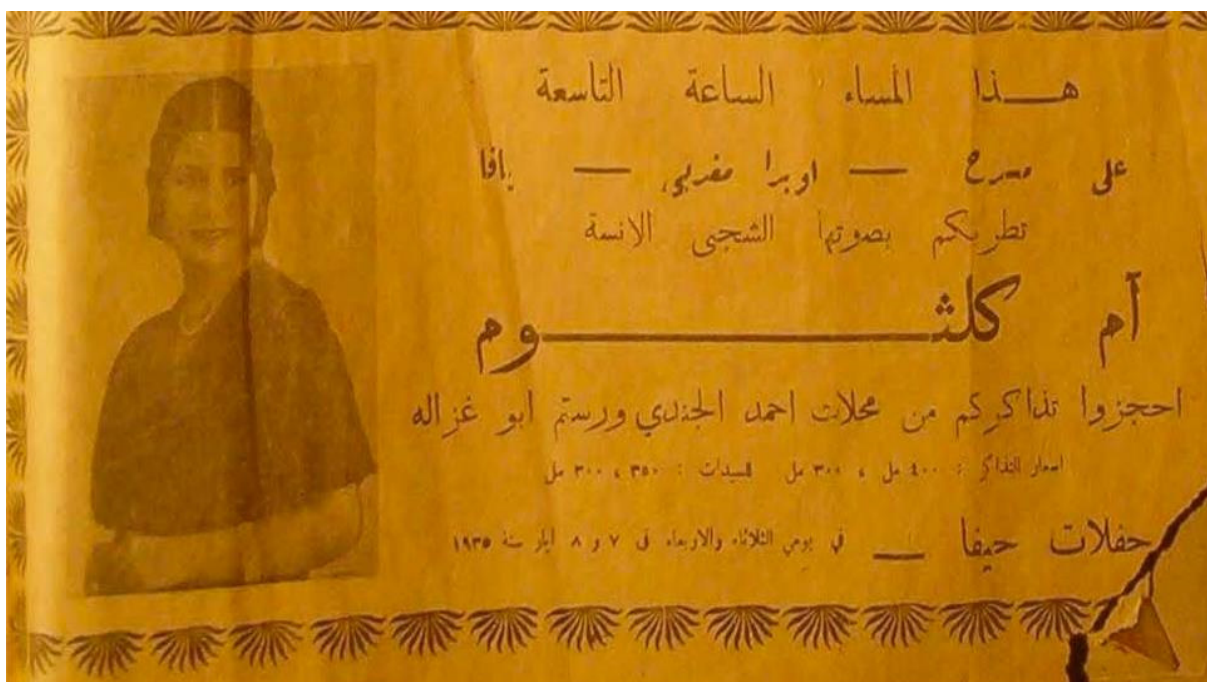 هــذا المساء الساعة التاسعة
على مسرح — اوبرا مغربي — يافا
تطربكم بصوتها الشجي الانسة
أم كلثـــــوم
احجزوا تذاكركم من محلات احمد الجندي ورستم ابو غزاله
اسعار التذاكر : ٤٠٠ مل ، ٣٠٠ مل للسيدات : ٣٥٠ ، ٣٠٠ مل
حفلات حيفا — في يومي الثلاثاء والاربعاء في ٧ و ٨ ايار سنة ١٩٣٥